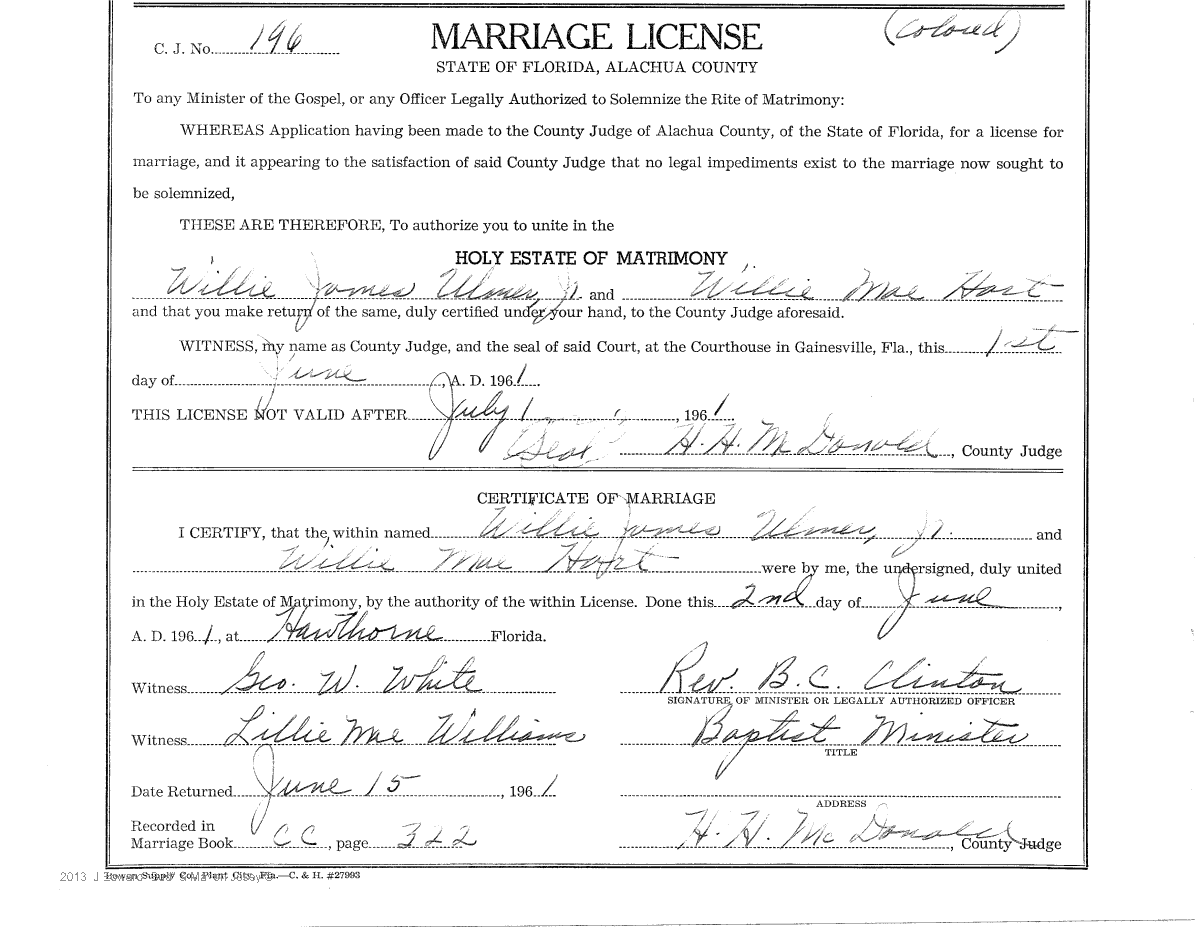 C. J. No. 196 MARRIAGE LICENSE (Colored)
STATE OF FLORIDA, ALACHUA COUNTY
To any Minister of the Gospel, or any Officer Legally Authorized to Solemnize the Rite of Matrimony:
WHEREAS Application having been made to the County Judge of Alachua County, of the State of Florida, for a license for
marriage, and it appearing to the satisfaction of said County Judge that no legal impediments exist to the marriage now sought to
be solemnized,
THESE ARE THEREFORE, To authorize you to unite in the
HOLY ESTATE OF MATRIMONY
Willie James Ulmer, Jr. and Willie Mae Hart
and that you make return of the same, duly certified under your hand, to the County Judge aforesaid.
WITNESS, my name as County Judge, and the seal of said Court, at the Courthouse in Gainesville, Fla., this 1st
day of June, A. D. 1961
THIS LICENSE NOT VALID AFTER July 1, 1961
(Seal) H. H. McDonald, County Judge
CERTIFICATE OF MARRIAGE
I CERTIFY, that the within named Willie James Ulmer, Jr. and
Willie Mae Hart were by me, the undersigned, duly united
in the Holy Estate of Matrimony, by the authority of the within License. Done this 2nd day of June,
A. D. 1961, at Hawthorne Florida.
Witness Geo. W. White Rev. B. C. Clinton
SIGNATURE OF MINISTER OR LEGALLY AUTHORIZED OFFICER
Witness Lillie Mae Williams Baptist Minister
TITLE
Date Returned June 15, 1961
ADDRESS
Recorded in
Marriage Book CC, page 322 H. H. McDonald, County Judge
2013 J
Bowen Supply Co., Plant City, Fla.—C. & H. #27993